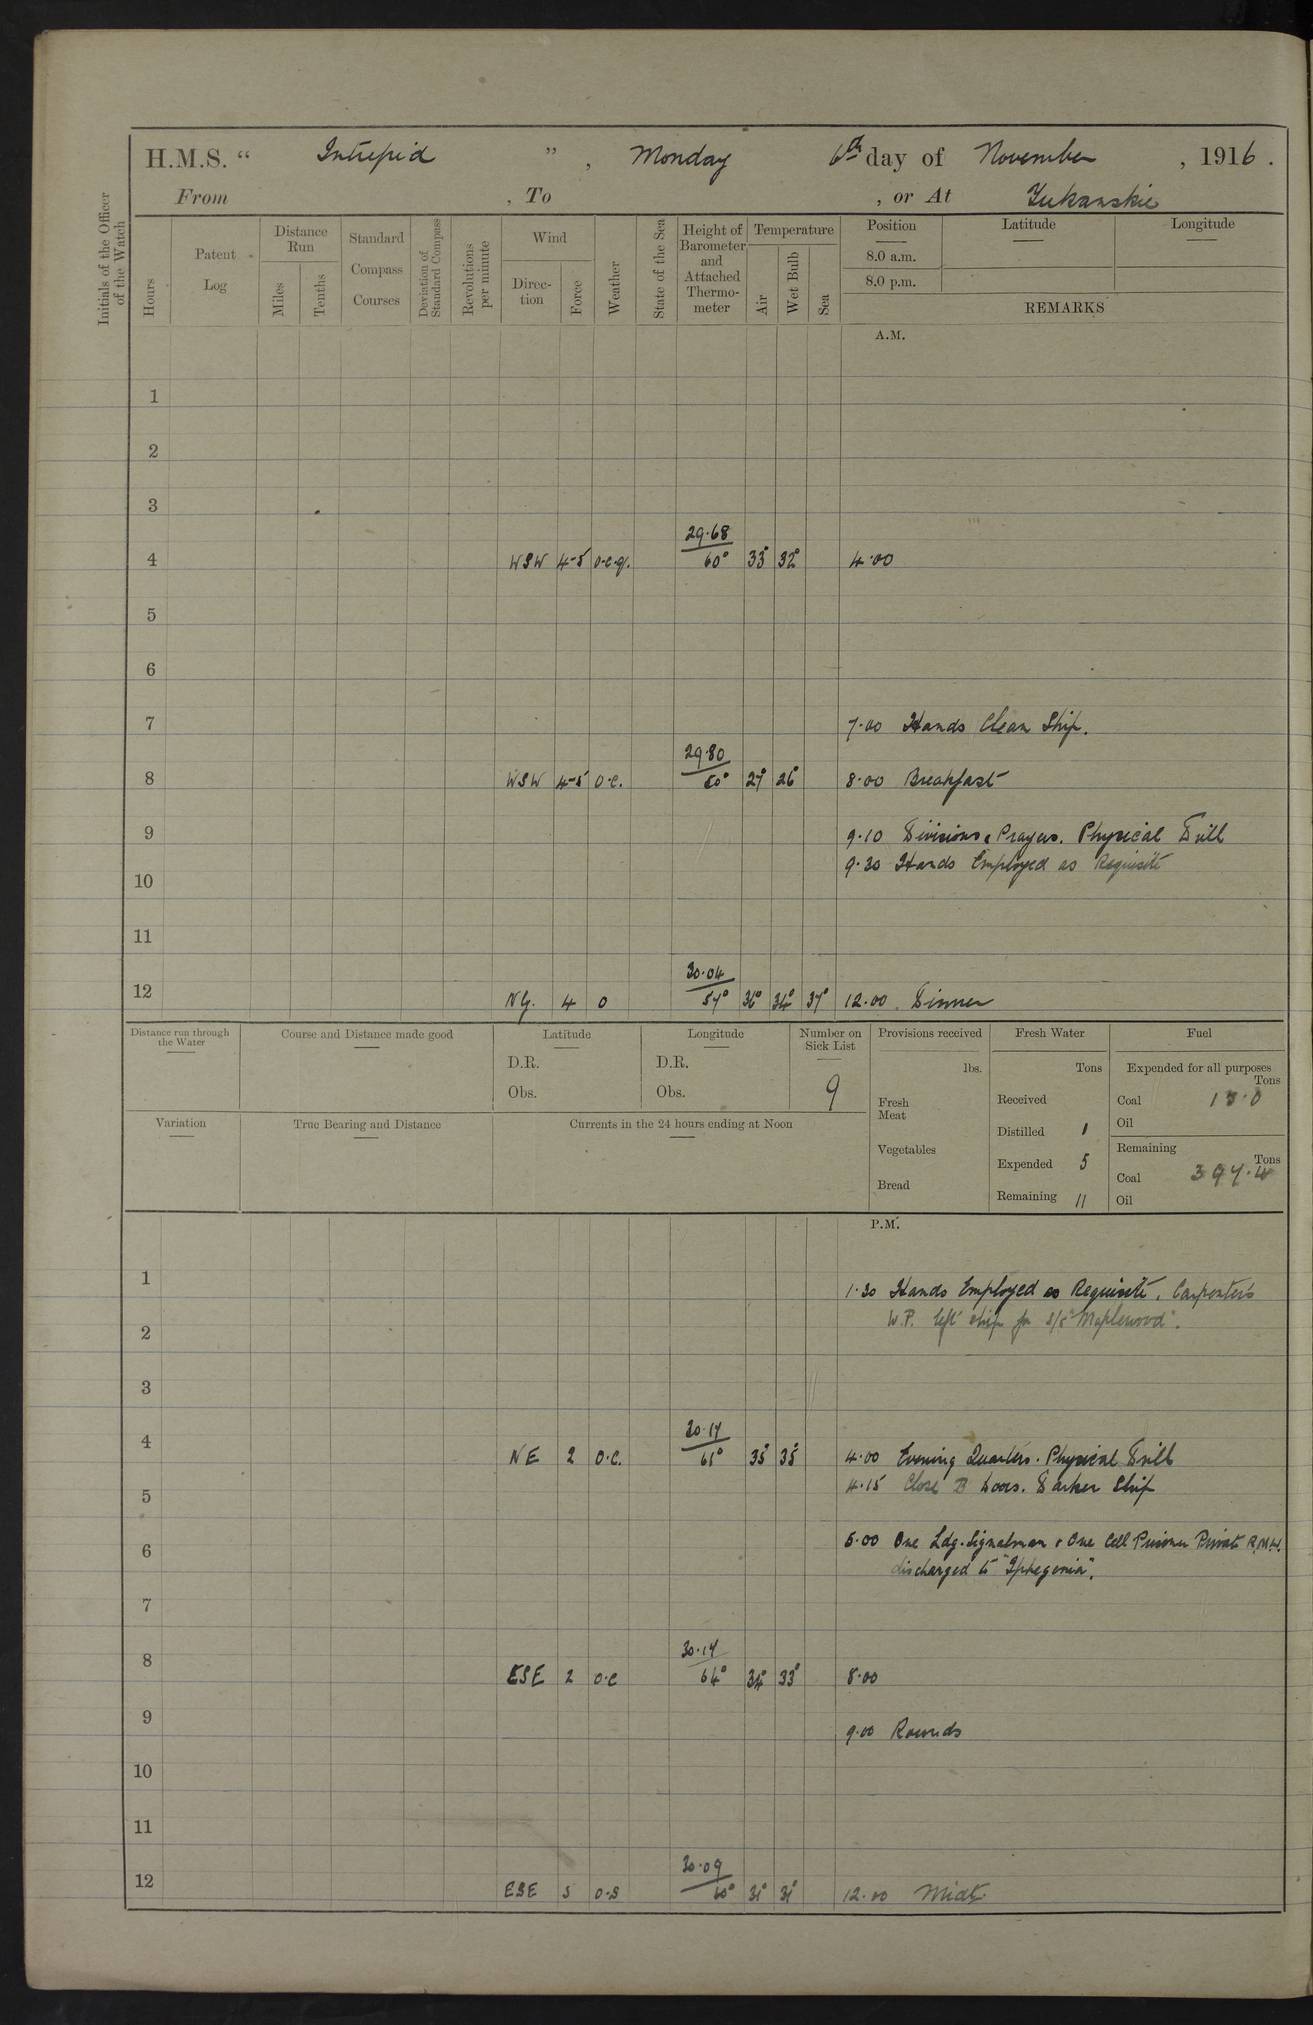 H.M.S. " Intrepid " , Monday 6th day of November , 1916 .
From , To , or At Yukanskie
Initials of the Officer of the Watch
Hours
Patent Log
Distance Run
Miles
Tenths
Standard Compass Courses
Deviation of Standard Compass
Revolutions per minute
Wind
Direction
Force
Weather
State of the Sea
Height of Barometer and Attached Thermometer
Temperature
Air
Wet Bulb
Sea
Position
Latitude
Longitude
8.0 a.m.
8.0 p.m.
REMARKS
A.M.
1
2
3
29.68
4 WSW 4-5 o.c.q. 60° 33° 32° 4.00
5
6
7 7.00 Hands Clean Ship.
29.80
8 WSW 4-5 o.c. 27° 26° 8.00 Breakfast
9 9.10 Divisions & Prayers. Physical Drill
9.30 Hands Employed as Requisite
10
11
30.04
12 4 o 57° 36° 34° 37° 12.00 Dinner
Distance run through the Water
Course and Distance made good
Latitude
D.R.
Obs.
Longitude
D.R.
Obs.
Number on Sick List
9
Variation
True Bearing and Distance
Currents in the 24 hours ending at Noon
Provisions received
lbs.
Fresh Meat
Vegetables
Bread
Fresh Water
Tons
Received
Distilled 1
Expended 5
Remaining 11
Fuel
Expended for all purposes
Tons
Coal
Oil
Remaining
Tons
Coal 397.4
Oil
P.M.
1 1.30 Hands Employed as Requisite. Carpenters
W.P. left ship for S/S "Maplewood".
2
3
30.17
4 NE 2 o.c. 61° 35° 35° 4.00 Evening Quarters. Physical Drill
4.15 Close B Doors. Darken Ship
5
6 6.00 One Ldg. Signalman & One Cell Prisoner Private R.M.L.I.
discharged to "Iphegenia".
7
30.17
8 ESE 2 o.c 64° 34° 33° 8.00
9 9.00 Rounds
10
11
30.09
12 ESE 5 o.s 60° 31° 31° 12.00 Midt.